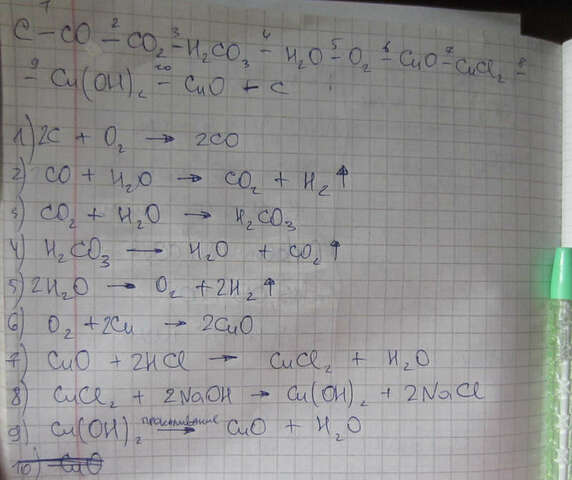 1 2 3 4 5 6 7 8
C – CO – CO₂ – H₂CO₃ – H₂O – O₂ – CuO – CuCl₂ –
9 10
– Cu(OH)₂ – CuO + C
1) 2C + O₂ → 2CO
2) CO + H₂O → CO₂ + H₂↑
3) CO₂ + H₂O → H₂CO₃
4) H₂CO₃ → H₂O + CO₂↑
5) 2H₂O → O₂ + 2H₂↑
6) O₂ + 2Cu → 2CuO
7) CuO + 2HCl → CuCl₂ + H₂O
8) CuCl₂ + 2NaOH → Cu(OH)₂ + 2NaCl
9) Cu(OH)₂ прокаливание → CuO + H₂O
10) CuO